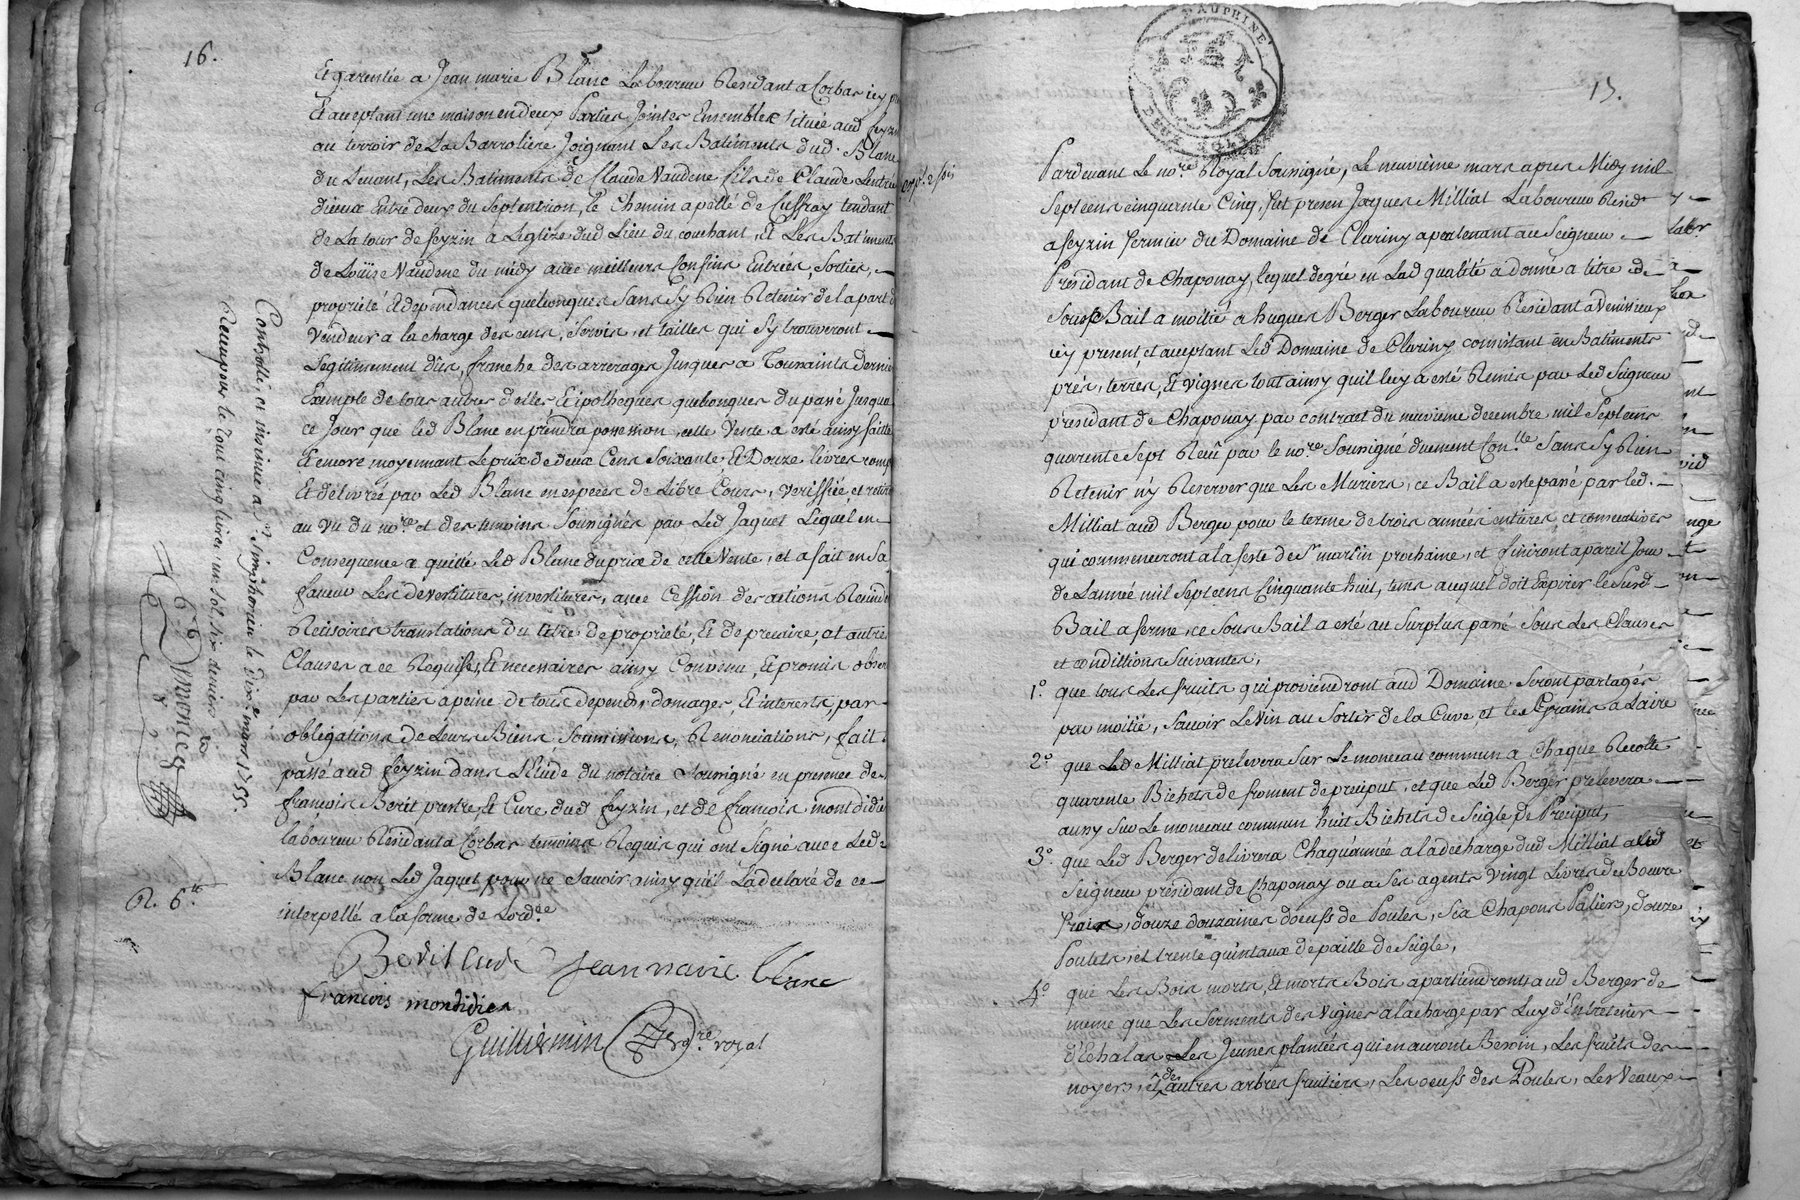 16.
Et garentie a Jean marie Blanc Laboureur Residant a Corbas icy
Et acceptant une maison en deux Parties Jointes Ensembles située aud feyzin
au terroir de La Barroliere Joignant Les Batiments dud. Blanc
du Levant, Les Batiments de Claude Vaudene fils de Claude
Entre deux du Septentrion, le Chemin apellé de tendant
de La tour de feyzin a Leglize dud Lieu du couchant, et Les Batiments
de Loüise Vaudene du midy avec meilleurs Confins Entrées, Sorties,
propriété Et dependances quelconques Sans Sy Rien Retenir de la part d
Vendeur a la charge des cens, Servis, et tailles qui Sy trouveront
Legitimement dûs, franche des arrerages Jusques a Toussaints dernier
Exempte de tous autres debtes Et ipotheques quelconques du passé Jusqua
ce Jour que led Blanc en prendra possession, cette Vente a esté ainsy faitte
Et encore moyennant Le prix de deux Cens Soixante Et Douze livres
Et délivrée par Led Blanc en especes de Libre Cours, veriffiée, et retiré
au vu du nore et des temoins Sousignés par Led Jaquet Lequel en
Consequence a quitté Led Blanc du prix de cette Vente, et a fait en Sa
faveur Les devestitures, investitures, avec Cession des actions Rescindentes
Recisoires translations du titre de proprieté, Et de precaire, et autres
Clauses a ce Requises, Et necessaires ainsy Convenu, Et promis
par Les parties a peine de tous depends, domages, Et interests, par
obligations de Leurs Biens Soumissions, Renonciations, fait
passé aud feyzin dans L'Etude du notaire Sousigné en presence de
francois Berit prestre, Et Curé dud feyzin, et de francois mondidier
laboureur Residant a Corbas temoins Requis qui ont Signé avec Led
Blanc non Led Jaquet pour ne Savoir ainsy qu'il L'a declaré de ce
interpellé a la forme de Lordce
R. 6lt
Berit Curé Jean marie blanc
francois mondidier
Guilliermin nore royal
Controllé, et insinué a St Simphorien le dixe mars 1755.
Receu pour le tout cinq livres un sol six deniers
15.
DAUPHINÉ
Pardevant Le nore Royal Sousigné, Le neuvième mars apres Midy mil
Septcens cinquante Cinq, fut present Jaques Milliat Laboureur Residt
a feyzin fermier du Domaine de Clariny apartenant au Seigneur
Président de Chaponay, lequel degré en Lad qualité a donné a titre de
Sousbail a moitié a hugues Berger Laboureur Résidant a Venissieux
icy present, et acceptant Led Domaine de Clariny consistant en Batiments
prés, terres, Et vignes tout ainsy quil luy a esté Remis par Led Seigneur
président de Chaponay par contract du neuvieme decembre mil Septcens
quarente Sept Reçu par le nore Sousigné duement Conlle Sans Sy Rien
Retenir n'y Reserver que Les Muriers, ce Bail a esté passé par led.
Milliat aud Berger pour le terme de trois années entieres, et consecutives
qui commenceront a la feste de St martin prochaine, et finiront a pareil Jour
de Lannée mil Septcens Cinquante huit, tems auquel doit Expirer le Susd
Bail a ferme, ce Sous Bail a esté au Surplus passé Sous Les Clauses
et condittions Suivantes,
1o. que tous Les fruits qui proviendront aud Domaine Seront partagés
par moitié, Savoir Le vin au Sortir de la Cuve, et les Grains a Laire
2o. que Led Milliat prelevera Sur Le monceau commun a Chaque Recolte
quarente Bichets de froment de preciput, et que Led Berger prelevera
aussy Sur Le monceau commun huit Bichets de Seigle, de Preciput,
3o. que Led Berger delivrera Chaqu'année a la decharge dud Milliat aud
Seigneur président de Chaponay ou a Ses agents vingt Livres de Beurre
frais, douze douzaines d'oeufs de Poules, Six Chapons Paliers, douze
Poulets, et trente quintaux de paille de Seigle,
4o. que Les Bois morts, Et morts Bois apartiendront aud Berger de
meme que Les Serments des Vignes a la charge par Luy d'Entretenir
d'Echalas Les Jeunes plantées qui en auront Besoin, Les fruits des
noyers, et des autres arbres fruitiers, Les oeufs des Poules, Les Veaux